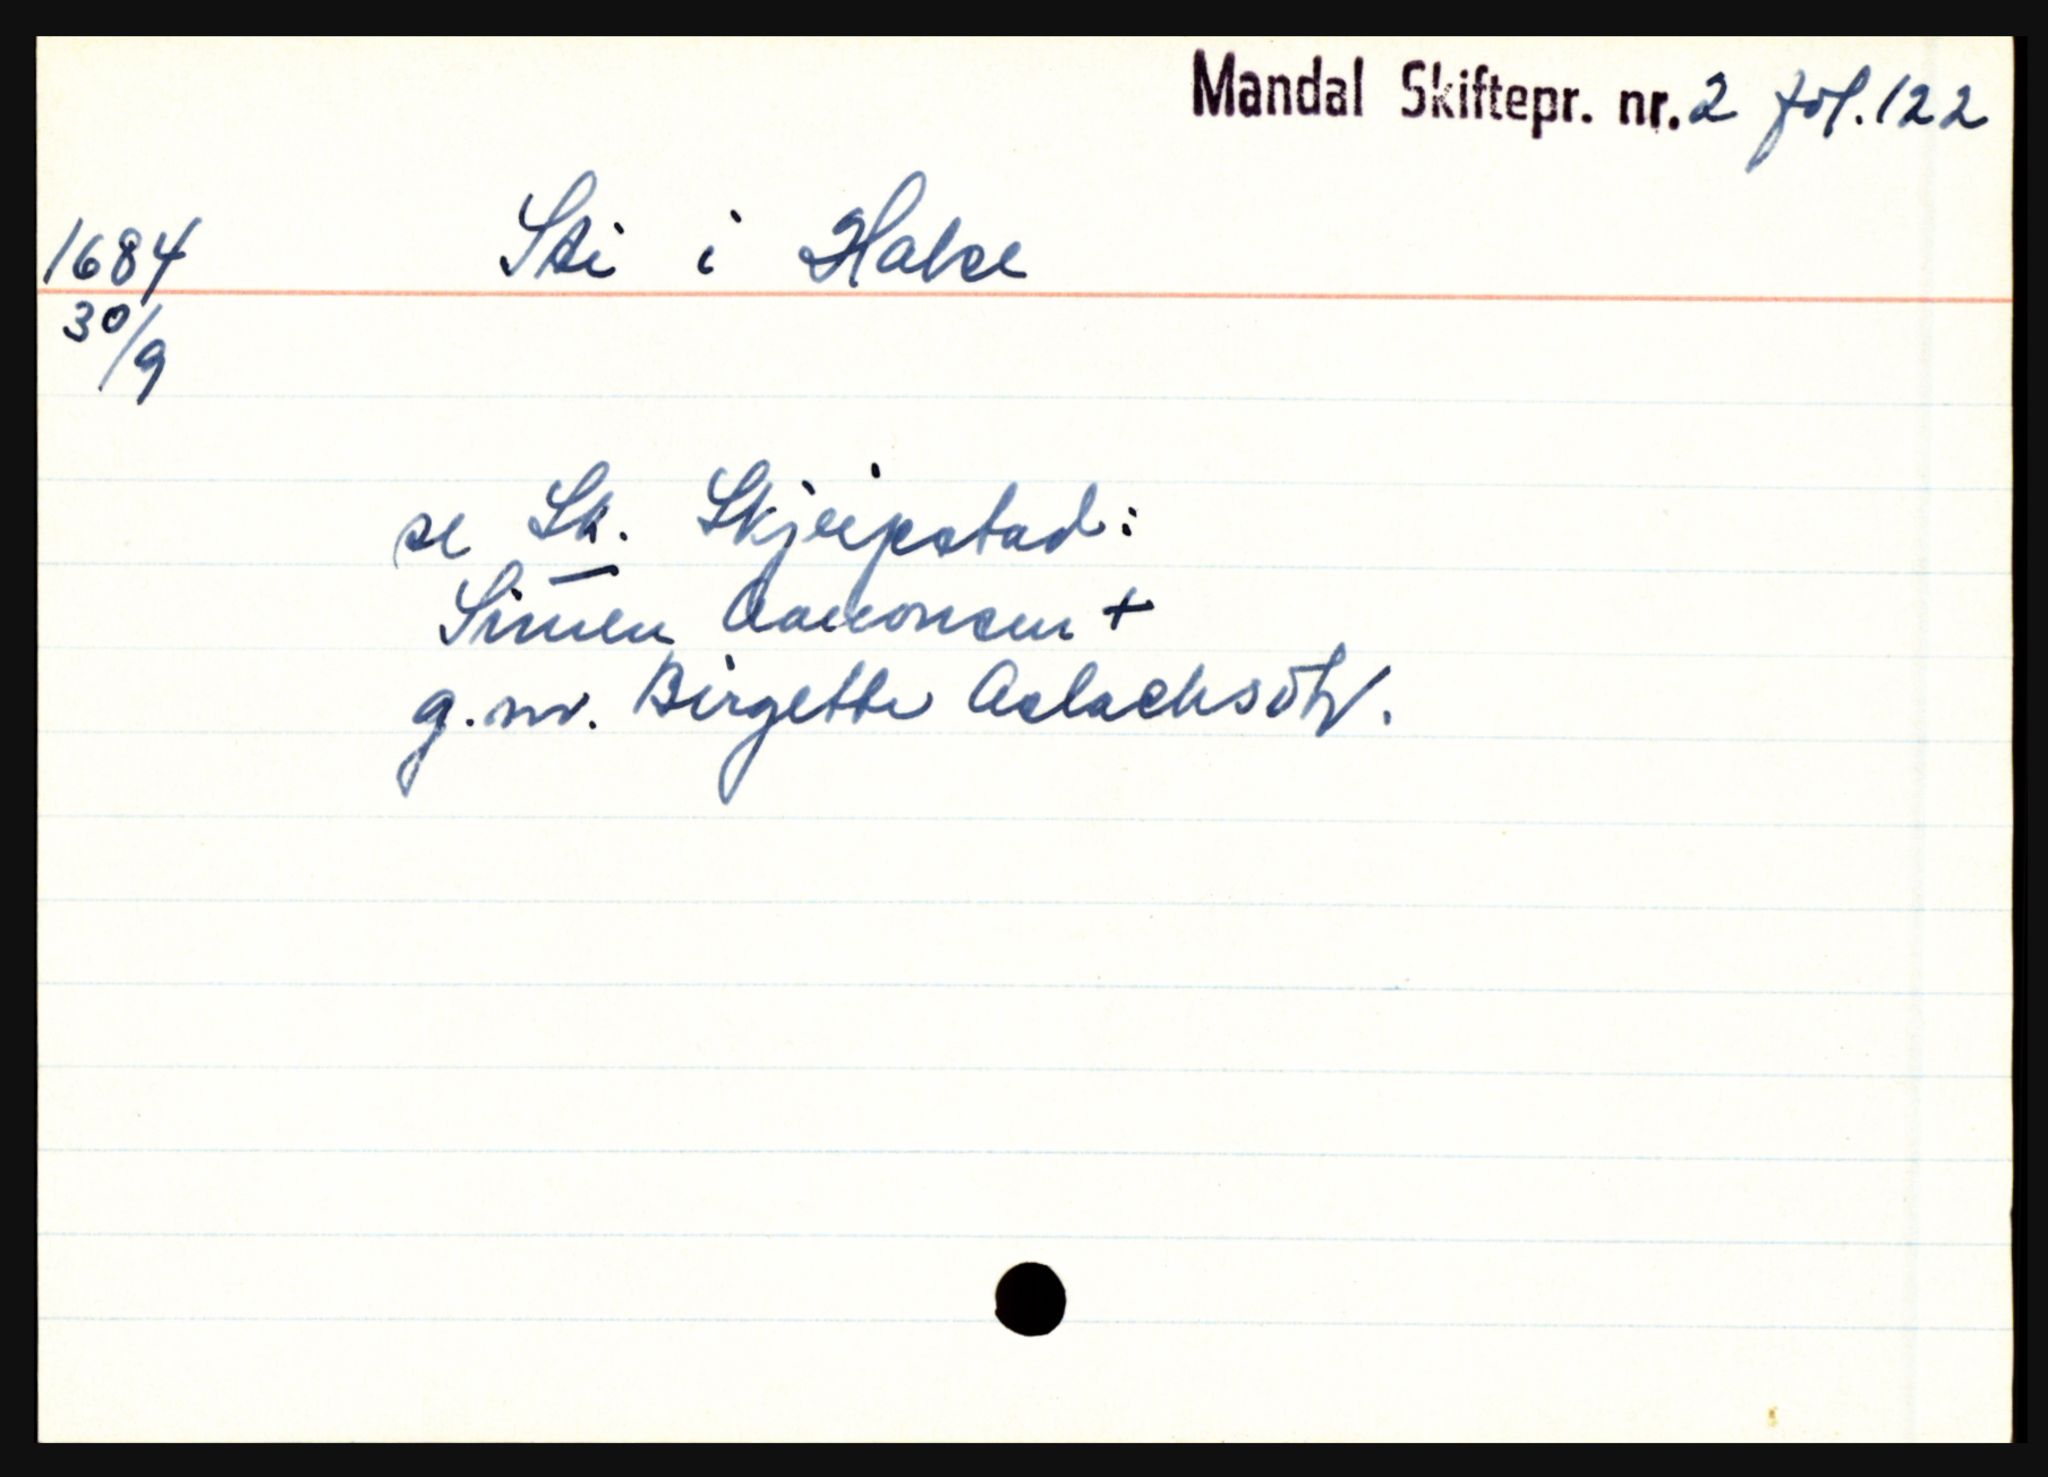 Mandal Skiftepr. nr. 2 fol. 122
1684 Sti i Halse
30/9
se Sk. Skjeipstad:
Simen Aamonsen +
g.m. Birgette Aslachsdtr.